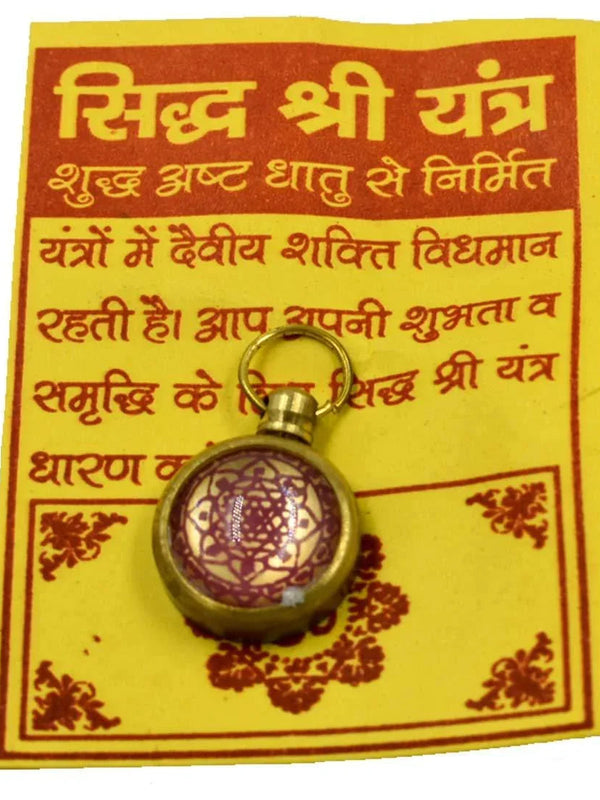 सिद्ध श्री यंत्र
शुद्ध अष्ट धातु से निर्मित
यंत्रों में दैवीय शक्ति विधमान
रहती है। आप अपनी शुभता व
समृद्धि के सिद्ध श्री यंत्र
धारण